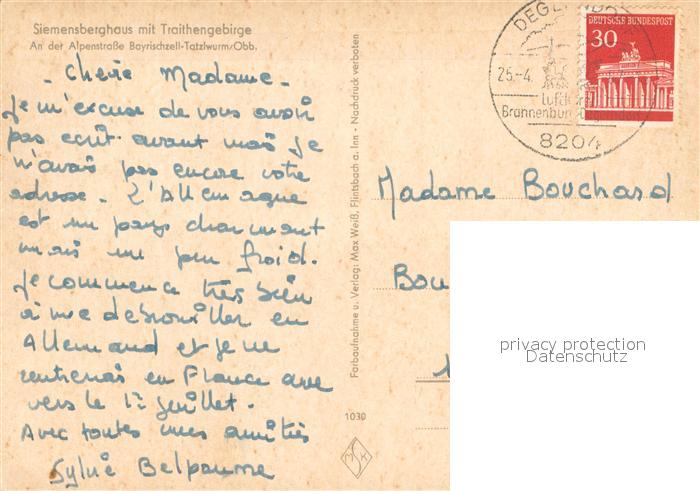 Siemensberghaus mit Traithengebirge
An der Alpenstraße Bayrischzell-Tatzlwurm/Obb.
- Chérie Madame -
Je m'excuse de vous avoir
pas écrit avant mais je
n'avais pas encore votre
adresse. L'Allemagne
est un pays charmant
mais un peu froid.
Je commence très bien
à me débrouiller en
Allemand et je ne
rentrerais en France que
vers le 12 juillet.
Avec toutes mes amitiés
Sylvie Belpaume
Farbaufnahme u. Verlag: Max Weiß, Flintsbach a. Inn - Nachdruck verboten
1030
25.-4.
Brannenburg
8204
DEUTSCHE BUNDESPOST
30
Madame Bouchard
Bou
privacy protection
Datenschutz